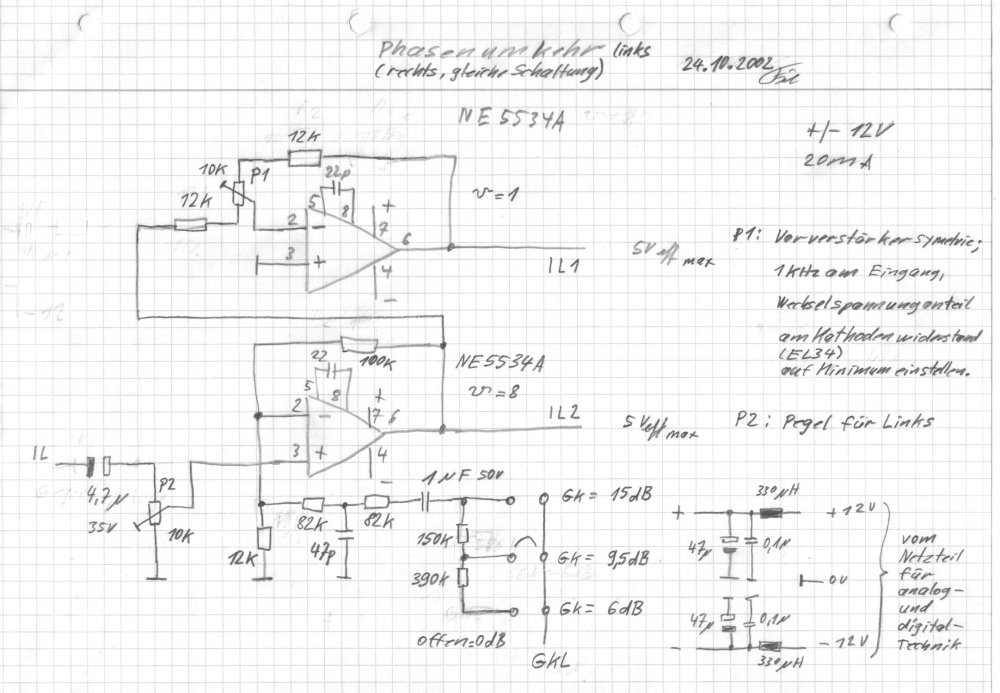 Phasenumkehr links
(rechts, gleiche Schaltung)
24.10.2002
NE5534A
+/- 12V
20mA
12K
10K P1
12K
22p
5
8
+
7
2
-
3
+
6
4
-
v=1
IL1
5Veff max
P1: Vorverstärkersymetrie;
1KHz am Eingang,
Wechselspannunganteil
am Kathodenwiderstand
(EL34)
auf Minimum einstellen.
100K
NE5534A
v=8
22
5
8
+
7
6
2
-
3
+
4
-
IL2
5Veff max
P2: Pegel für Links
IL
4,7µ
35V
P2
10K
1µF 50V
82K
82K
47p
12K
150K
390K
GK= 15dB
GK= 9,5dB
GK= 6dB
offen=0dB
GKL
330µH
+
+12V
47µ
0,1µ
0V
47µ
0,1µ
-
-12V
330µH
vom
Netzteil
für
analog-
und
digital-
Technik